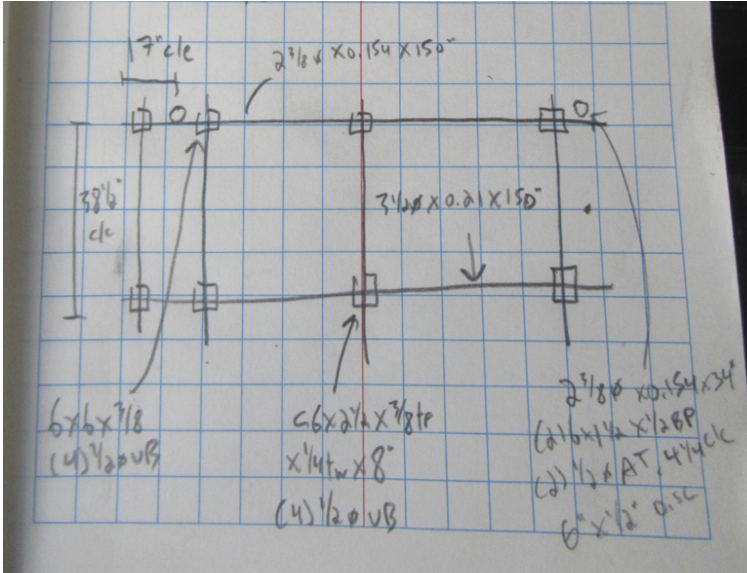 17" c/c
2 3/8 ø x 0.154 x 150"
38 1/2"
c/c
3 1/2 ø x 0.21 x 150"
6x6x3/8
(4) 1/2 ø UB
C6x2 1/2 x 3/8 tf
x 1/4 tw x 8"
(4) 1/2 ø UB
2 3/8 ø x 0.154 x 34"
(2) 6x1 1/2 x 1/2 BP
(2) 1/2 ø AT, 4 1/4 c/c
6" x 1/2" DISC